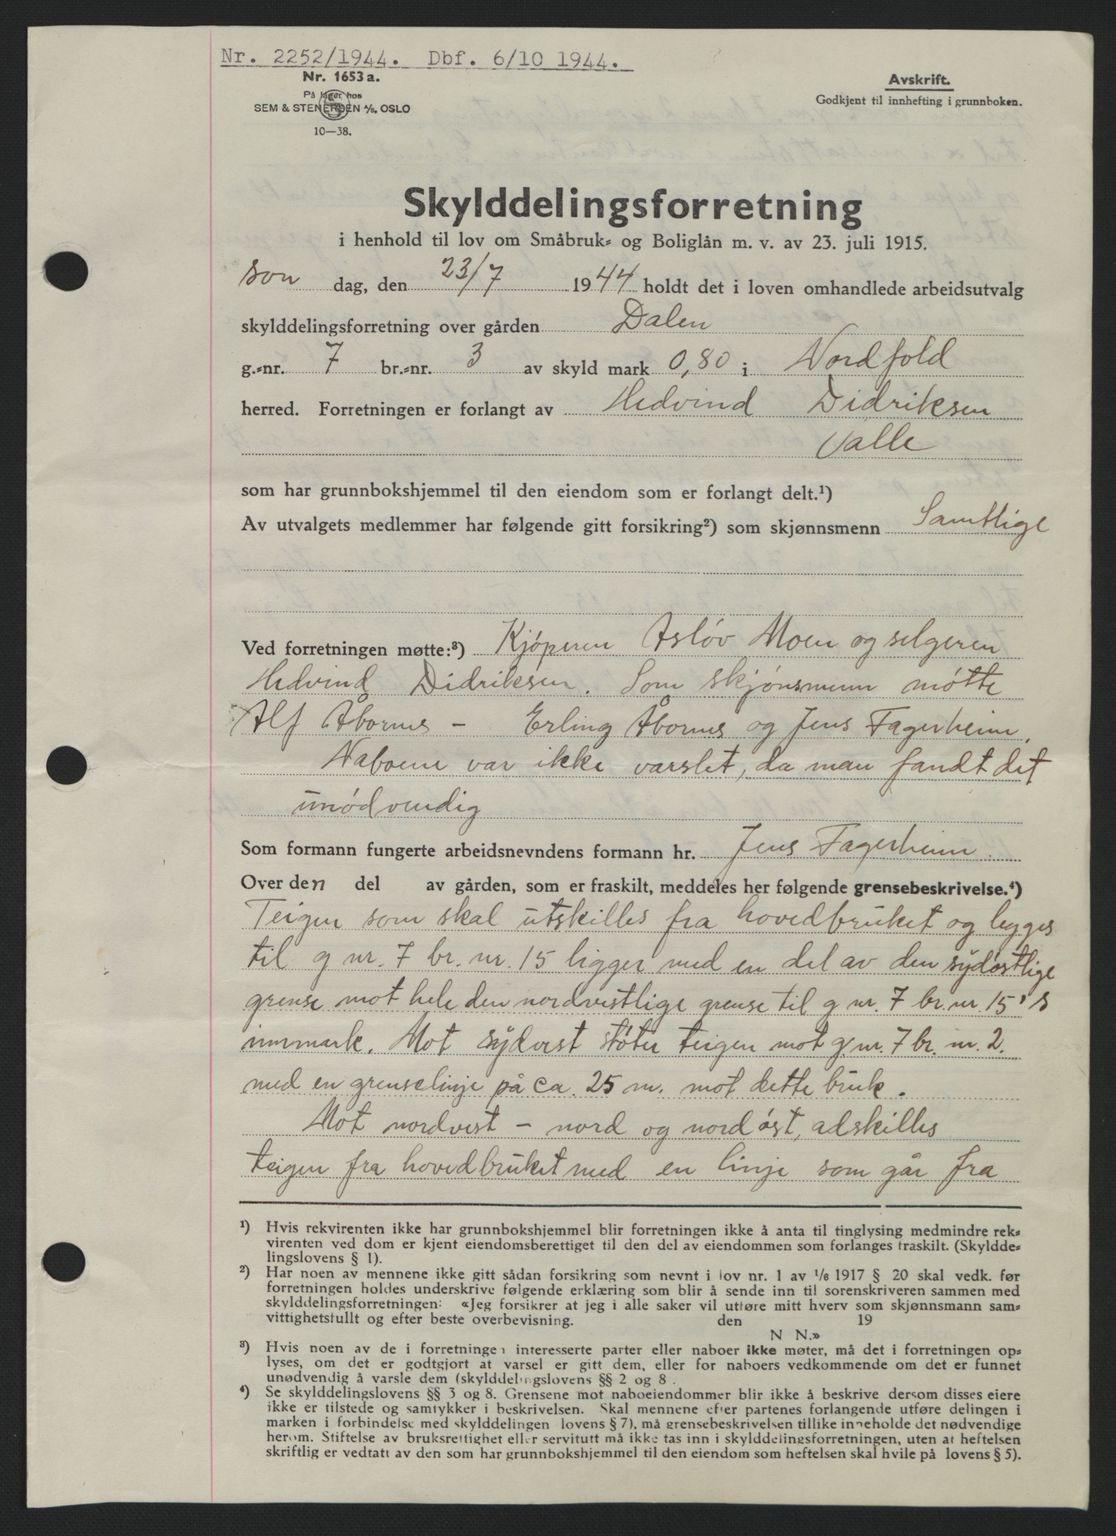 Nr. 2252/1944. Dbf. 6/10 1944.
Nr. 1653 a.
På lager hos
SEM & STENERSEN A/S, OSLO
10—38.
Avskrift.
Godkjent til innhefting i grunnboken.
Skylddelingsforretning
i henhold til lov om Småbruk- og Boliglån m. v. av 23. juli 1915.
søn dag, den 23/7 1944 holdt det i loven omhandlede arbeidsutvalg
skylddelingsforretning over gården Dalen
g.-nr. 7 br.-nr. 3 av skyld mark 0,80 i Nordfold
herred. Forretningen er forlangt av Hedvind Didriksen
Valle
som har grunnbokshjemmel til den eiendom som er forlangt delt.¹)
Av utvalgets medlemmer har følgende gitt forsikring²) som skjønnsmenn Samtlige
Ved forretningen møtte:³) Kjøperen Asløv Moen og selgeren
Hedvind Didriksen. Som skjønsmenn møtte
Alf Åbornes - Erling Åbornes og Jens Fagerheim.
Naboene var ikke varslet, da man fandt det
unødvendig
Som formann fungerte arbeidsnevndens formann hr. Jens Fagerheim.
Over den del av gården, som er fraskilt, meddeles her følgende grensebeskrivelse.⁴)
Teigen som skal utskilles fra hovedbruket og legges
til g nr. 7 br. nr. 15 ligger med en del av den sydøstlige
grense mot hele den nordvestlige grense til g nr. 7 br. nr. 15's
innmark. Mot sydvest støter teigen mot g. nr. 7 br. nr. 2.
med en grenselinje på ca. 25 m. mot dette bruk.
Mot nordvest - nord og nordøst, adskilles
teigen fra hovedbruket med en linje som går fra
¹) Hvis rekvirenten ikke har grunnbokshjemmel blir forretningen ikke å anta til tinglysing medmindre rek-
virenten ved dom er kjent eiendomsberettiget til den del av eiendommen som forlanges fraskilt. (Skyldde-
lingslovens § 1).
²) Har noen av mennene ikke gitt sådan forsikring som nevnt i lov nr. 1 av 1/6 1917 § 20 skal vedk. før
forretningen holdes underskrive følgende erklæring som blir å sende inn til sorenskriveren sammen med
skylddelingsforretningen: «Jeg forsikrer at jeg i alle saker vil utføre mitt hverv som skjønnsmann sam-
vittighetsfullt og efter beste overbevisning. den 19
N N.»
³) Hvis noen av de i forretningen interesserte parter eller naboer ikke møter, må det i forretningen op-
lyses, om det er godtgjort at varsel er gitt dem, eller for naboers vedkommende om det er funnet
unødvendig å varsle dem (skylddelingslovens §§ 2 og 8.
⁴) Se skylddelingslovens §§ 3 og 8. Grensene mot naboeiendommer blir ikke å beskrive dersom disses eiere
ikke er tilstede og samtykker i beskrivelsen. Skal mennene efter partenes forlangende utføre delingen i
marken i forbindelse med skylddelingen lovens § 7), må grensebeskrivelsen tillike inneholde det nødvendige
herom. Stiftelse av bruksrettighet eller servitutt må ikke tas inn i skylddelingsforretningen, uten at heftelsen
skriftlig er vedtatt av den som har grunnbokshjemmel til den eiendom som heftelsen skal hvile på lovens § 5).